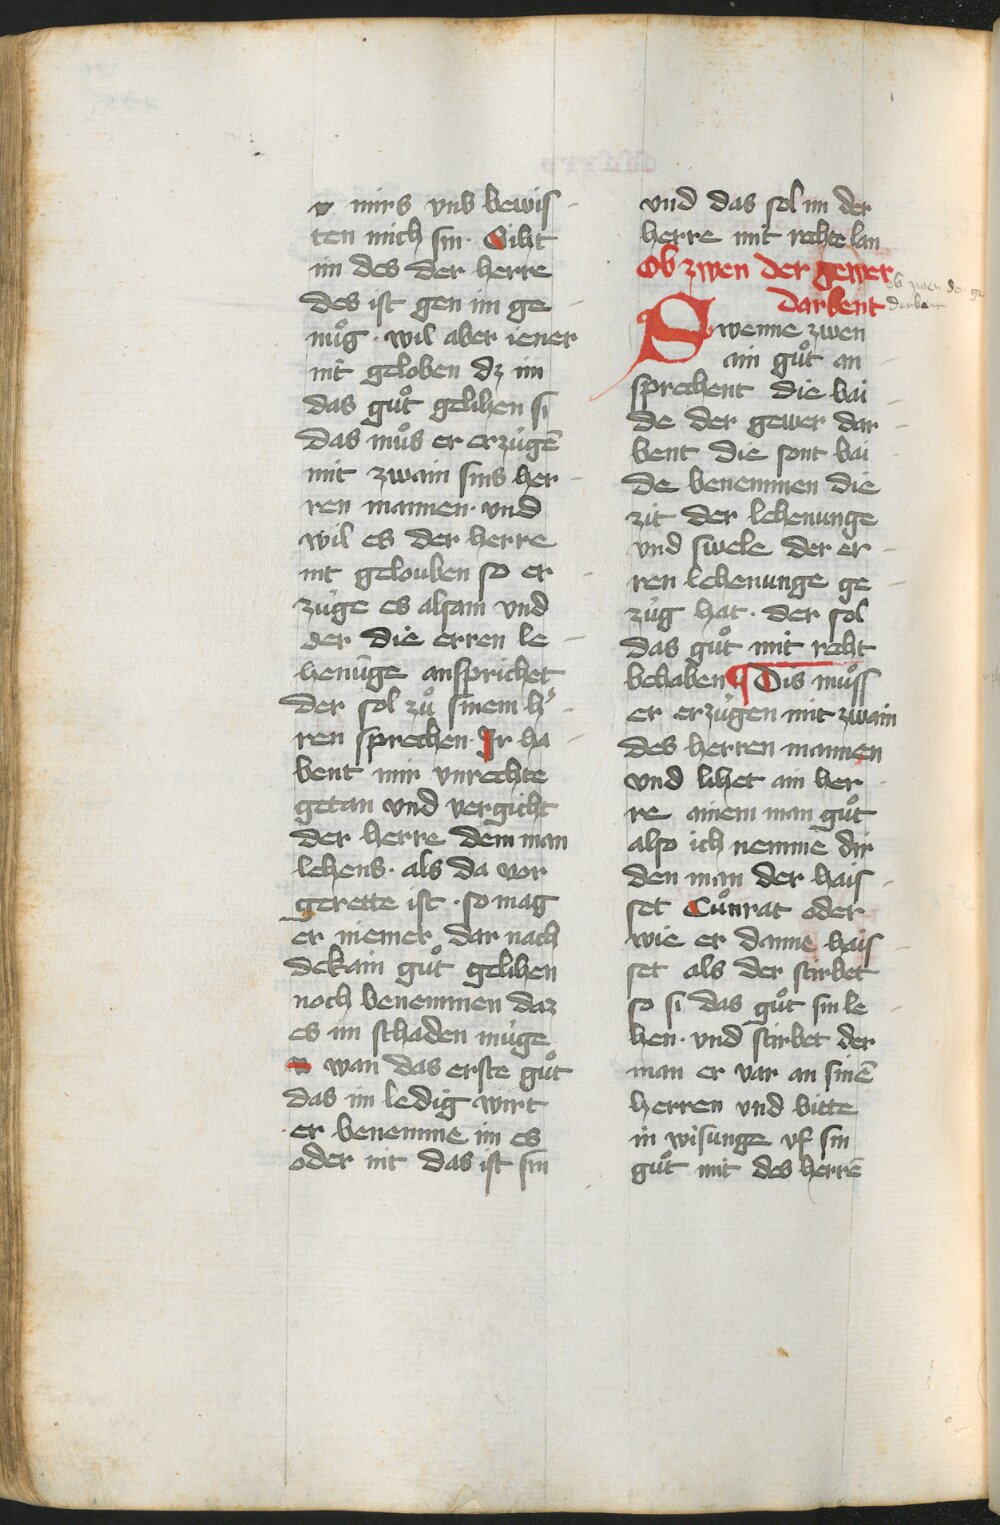 v mirs vnb bewis
ten mich sin. Giht
im des der herre
des ist gen im ge
nuͦg. wil aber iener
nit geloben dz im
das guͦt gelihen si
das muͦs er erzúgē
mit zwain sins her
ren mannen. vnd
wil es der herre
nit gelouben so er
zúge es alsam vnd
der die erren le
henūge ansprichet
der sol zuͦ sinem h'
ren sprechen. Ir ha
bent mir vnrechte
getan vnd vergicht
der herre dem man
lehens. als da vor
gerette ist. so mag
er niemer dar nach
dekain guͦt gelihen
noch benemmen daz
es im schaden múge
wan das erste guͦt
das im ledig wirt
er benemme im es
oder nit das ist sin
vnd das sol im der
herre mit rechte lan
Ob zwen der gewer
darbent
ob zwen der ge
darbent
Swenne zwen
ain guͦt an
sprechent die bai
de der gewer dar
bent die sont bai
de benemmen die
zit der lehenunge
vnd swele der er
ren lehenunge ge
zúg hat. der sol
das guͦt mit recht
behaben ¶ Dis muͦss
er erzúgen mit zwain
des herren mannen
vnd lihet ain her
re ainem man guͦt
also ich nemme dir
den man der hais
set Cuͦnrat oder
wie er danne hais
set als der stirbet
so si das guͦt sin le
hen. vnd stirbet der
man er var an sinē
herren vnd bitte
in wisunge vf sin
guͦt mit des herrē